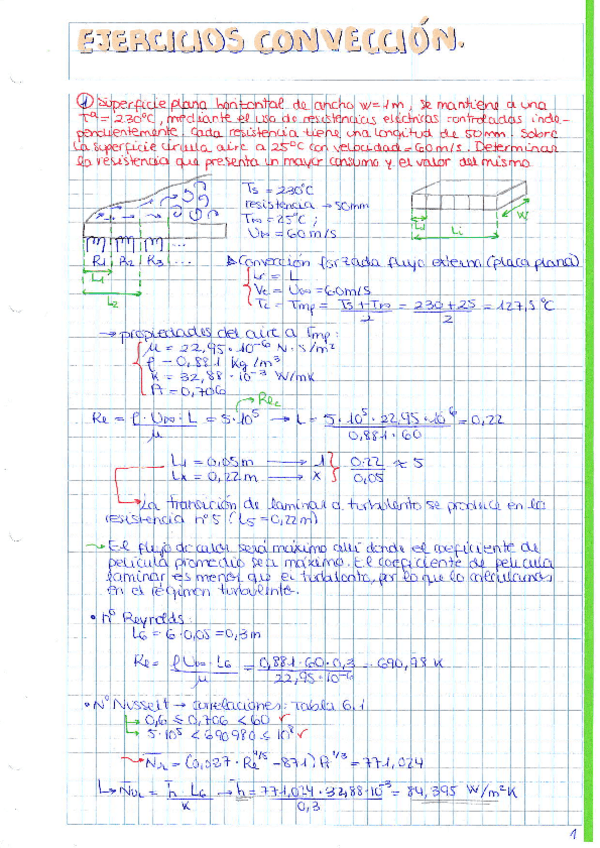 EJERCICIOS CONVECCIÓN.
① Superficie plana horizontal de ancho w=1m, se mantiene a una
Tª = 230ºC, mediante el uso de resistencias eléctricas controladas inde-
pendientemente. Cada resistencia tiene una longitud de 50mm. Sobre
la superficie circula aire a 25ºC con velocidad = 60m/s. Determinar
la resistencia que presenta un mayor consumo y el valor del mismo
Ts = 230ºC
resistencia → 50mm
T∞ = 25ºC ;
U∞ = 60 m/s
L1
Li
W
R1 R2 R3 ...
L1
L2
Convección forzada flujo externo (placa plana)
Lc = L
Vc = U∞ = 60m/s
Tc = Tmp = Ts + T∞ / 2 = 230 + 25 / 2 = 127,5 ºC
→ propiedades del aire a Tmp:
μ = 22,95 · 10⁻⁶ N · s/m²
ρ = 0,881 kg/m³
k = 32,88 · 10⁻³ W/mK
Pr = 0,706
Rec
Re = ρ · U∞ · L / μ = 5 · 10⁵ → L = 5 · 10⁵ · 22,95 · 10⁻⁶ / 0,881 · 60 = 0,22
L1 = 0,05m → 1
Lx = 0,22m → x
0.22 / 0,05 ≈ 5
La transición de laminar a turbulento se produce en la
resistencia nº5 (L5 = 0,22m)
→ El flujo de calor será máximo allí donde el coeficiente de
película promedio sea máximo. El coeficiente de película
laminar es menor que el turbulento, por lo que lo calculamos
en el régimen turbulento.
• nº Reynolds:
L6 = 6 · 0,05 = 0,3m
Re = ρ U∞ · L6 / μ = 0,881 · 60 · 0,3 / 22,95 · 10⁻⁶ = 690,98 K
• Nº Nusselt → correlaciones: Tabla 6.1
0,6 ≤ 0,706 < 60 ✓
5 · 10⁵ < 690980 ≤ 10⁸ ✓
NuL = (0,037 · Re^4/5 - 871) Pr^1/3 = 771,024
NuL = h L6 / k → h = 771,024 · 32,88 · 10⁻³ / 0,3 = 84,395 W/m²K
1